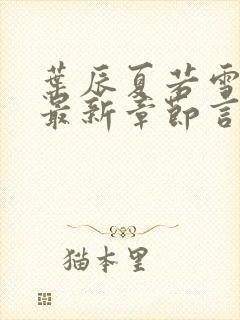 葉辰夏若雪
最新章節言
猫本里